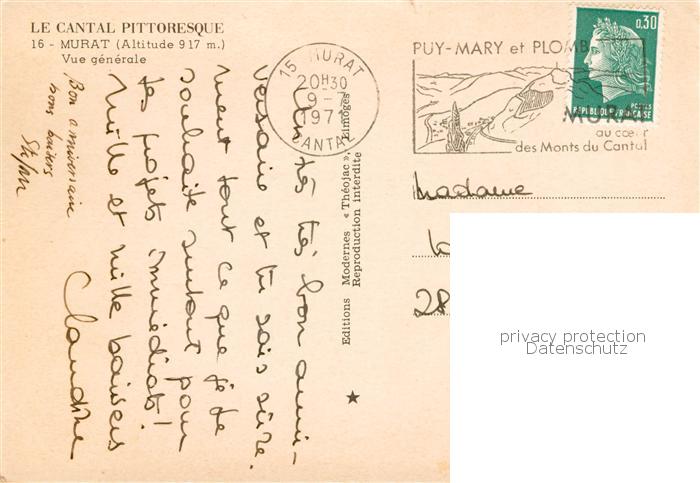 LE CANTAL PITTORESQUE
16 - MURAT (Altitude 917 m.)
Vue générale
Bon anniversaire
bons baisers
très bon anni-
versaire et tu sais sûre.
ment tout ce que je te
souhaite surtout pour
tes projets immédiats!
Mille et mille baisers
Claudine
Editions Modernes « Théojac », Limoges
Reproduction interdite
15 MURAT
20H30
9 -
197
CANTAL
PUY-MARY et PLOMB
MURAT
au cœur
des Monts du Cantal
0,30
POSTES
REPUBLIQUE FRANÇAISE
Madame
28
privacy protection
Datenschutz